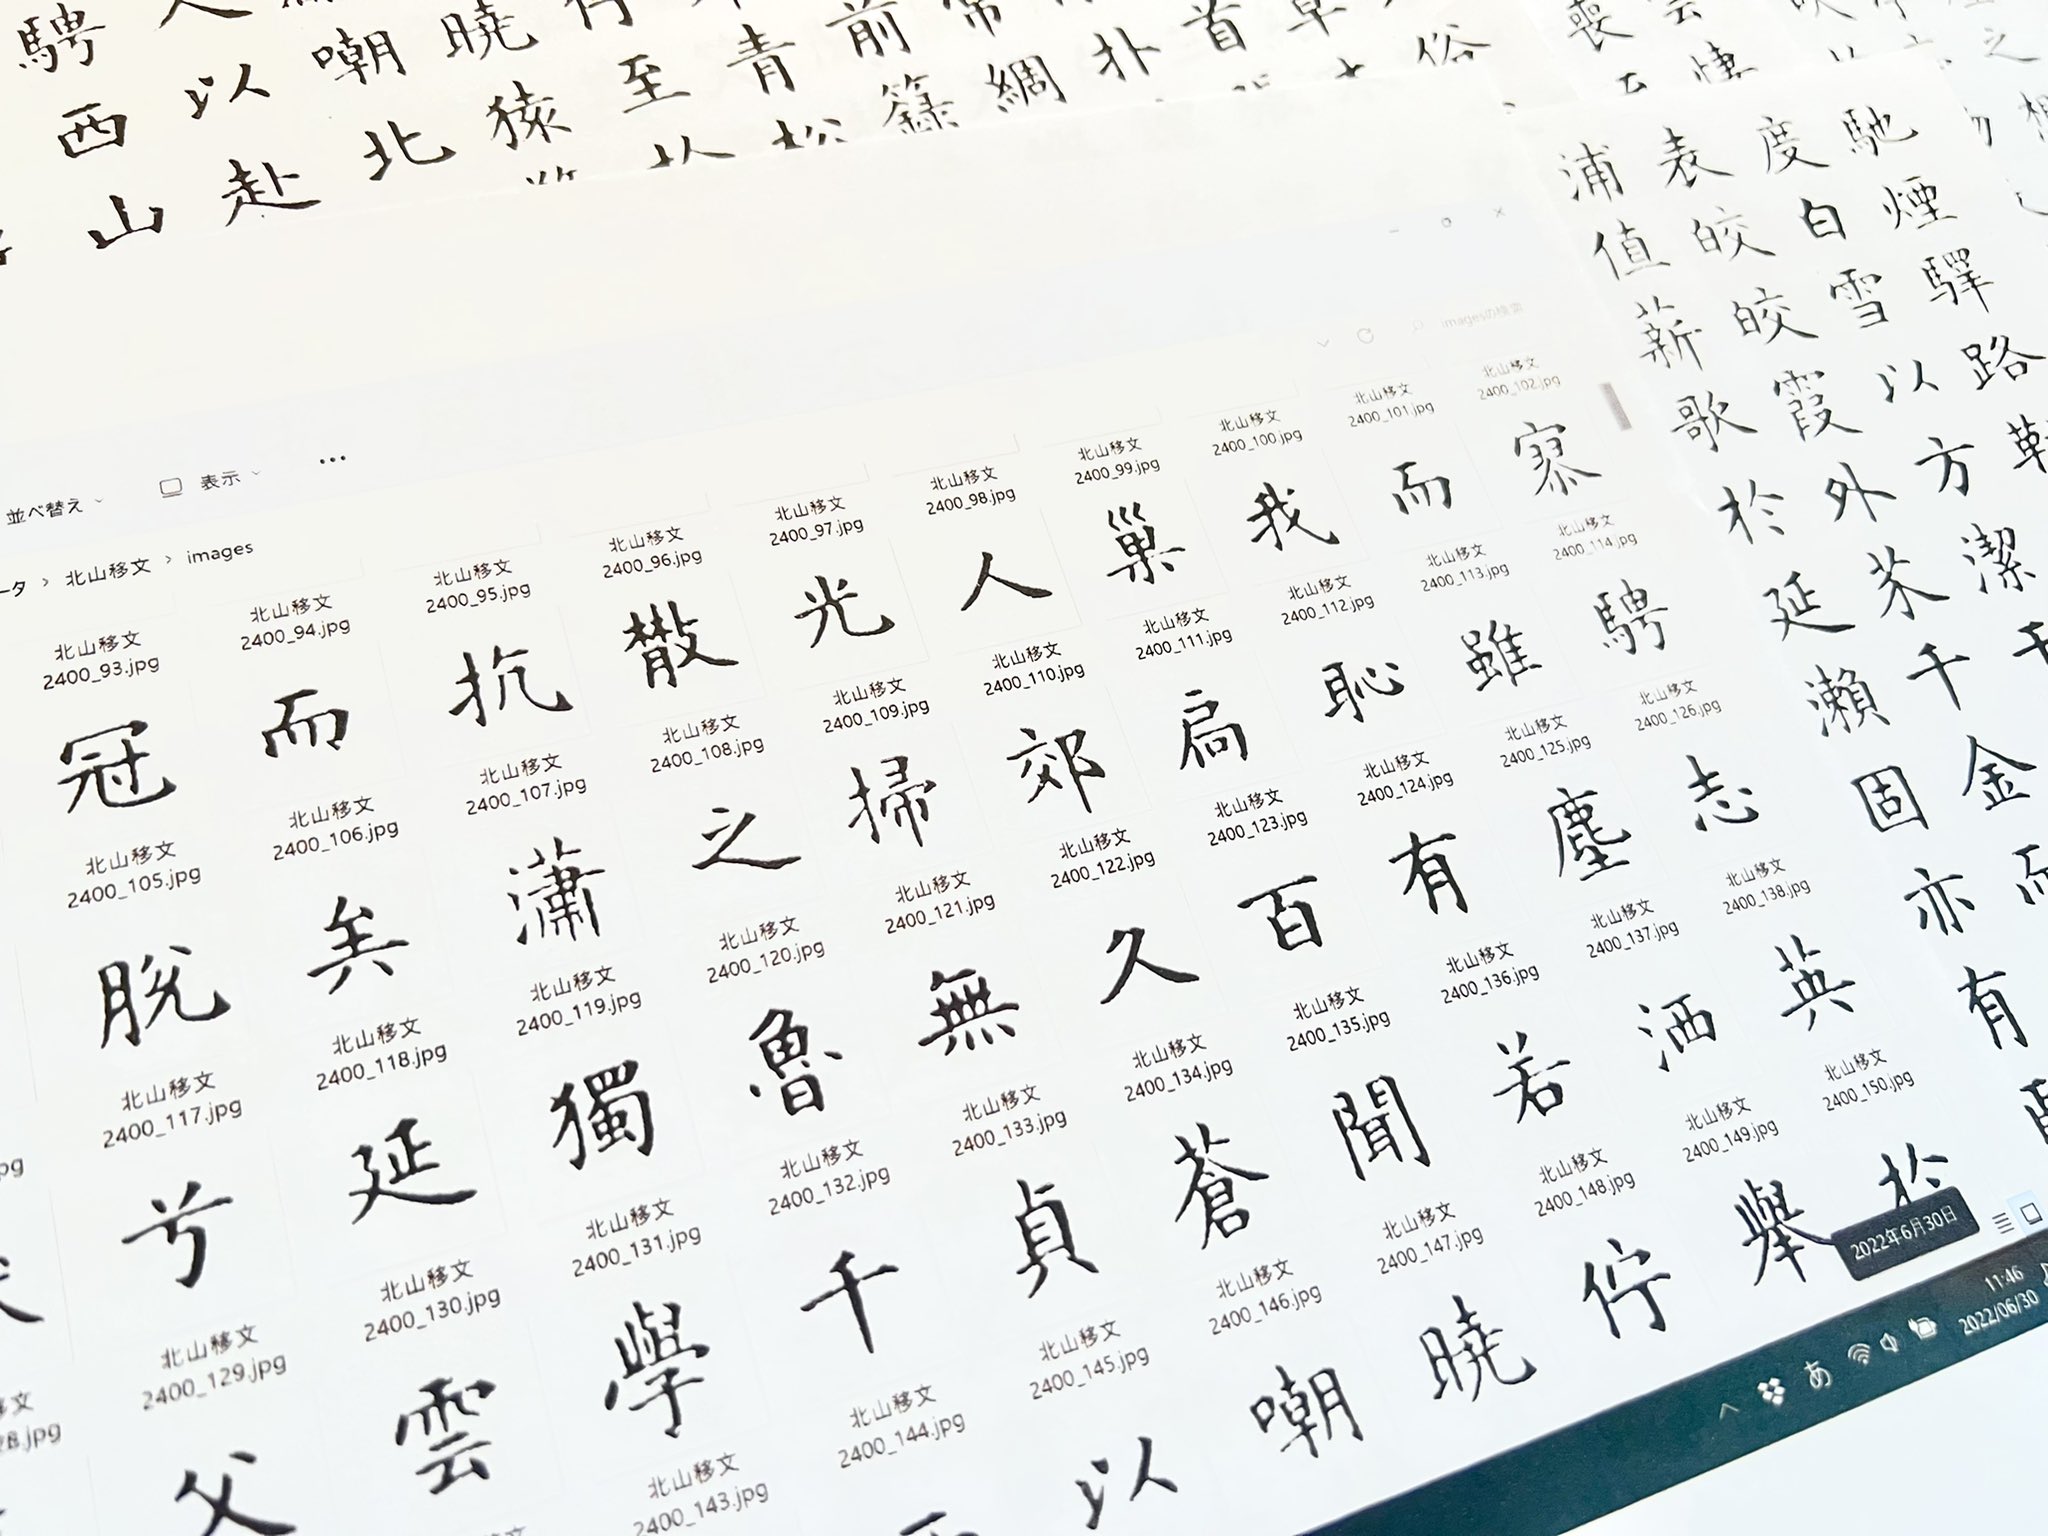 馳煙驛路
度白雪以方潔干
表皎皎霞外芥千金而
浦値薪歌於延瀬固亦有
俗
首
朴
綢
前籙
青
至
曉猿
嘲北
以赴
騁西山
imagesの検索
並べ替え 表示 …
北山移文 › images
北山移文 2400_93.jpg
北山移文 2400_94.jpg
北山移文 2400_95.jpg
北山移文 2400_96.jpg
北山移文 2400_97.jpg
北山移文 2400_98.jpg
北山移文 2400_99.jpg
北山移文 2400_100.jpg
北山移文 2400_101.jpg
北山移文 2400_102.jpg
冠 而 抗 散 光 人 巢 我 而 寡
北山移文 2400_105.jpg
北山移文 2400_106.jpg
北山移文 2400_107.jpg
北山移文 2400_108.jpg
北山移文 2400_109.jpg
北山移文 2400_110.jpg
北山移文 2400_111.jpg
北山移文 2400_112.jpg
北山移文 2400_113.jpg
北山移文 2400_114.jpg
脫 矣 瀟 之 掃 郊 扃 恥 雖 騁
北山移文 2400_117.jpg
北山移文 2400_118.jpg
北山移文 2400_119.jpg
北山移文 2400_120.jpg
北山移文 2400_121.jpg
北山移文 2400_122.jpg
北山移文 2400_123.jpg
北山移文 2400_124.jpg
北山移文 2400_125.jpg
北山移文 2400_126.jpg
兮 延 獨 魯 無 久 百 有 塵 志
北山移文 2400_129.jpg
北山移文 2400_130.jpg
北山移文 2400_131.jpg
北山移文 2400_132.jpg
北山移文 2400_133.jpg
北山移文 2400_134.jpg
北山移文 2400_135.jpg
北山移文 2400_136.jpg
北山移文 2400_137.jpg
北山移文 2400_138.jpg
父 雲 學 千 貞 蒼 聞 若 洒 英
北山移文 2400_143.jpg
北山移文 2400_144.jpg
北山移文 2400_145.jpg
北山移文 2400_146.jpg
北山移文 2400_147.jpg
北山移文 2400_148.jpg
北山移文 2400_149.jpg
北山移文 2400_150.jpg
以 嘲 曉 佇 舉 於
2022年6月30日
あ
11:46
2022/06/30